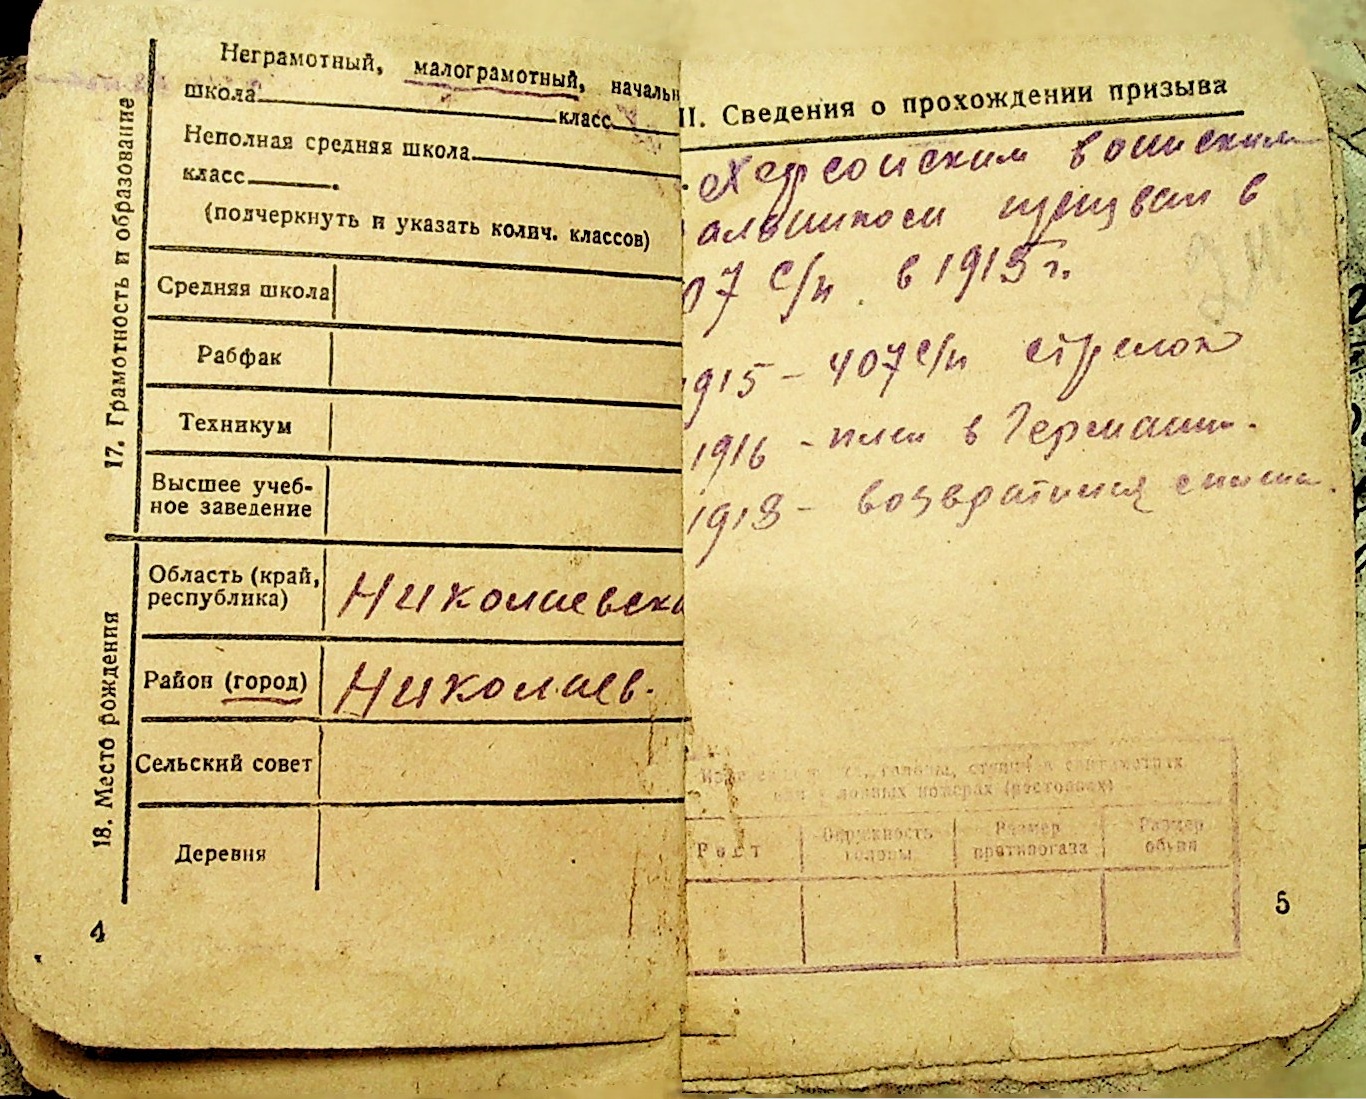 17. Грамотность и образование
Неграмотный, малограмотный, начальн
школа класс
Неполная средняя школа
класс .
(подчеркнуть и указать колич. классов)
Средняя школа
Рабфак
Техникум
Высшее учеб-
ное заведение
18. Место рождения
Область (край,
республика) Николаевска
Район (город) Николаев.
Сельский совет
Деревня
4
II. Сведения о прохождении призыва
Херсонским воинским
призван в
07 с/п в 1915 г.
1915 - 407 с/п стрелок
1916 - плен в Германии.
1918 - возвратился
голов, в сантиметрах
номерах (ростовках)
Рост
Окружность
головы
Размер
противогаза
Размер
обуви
5